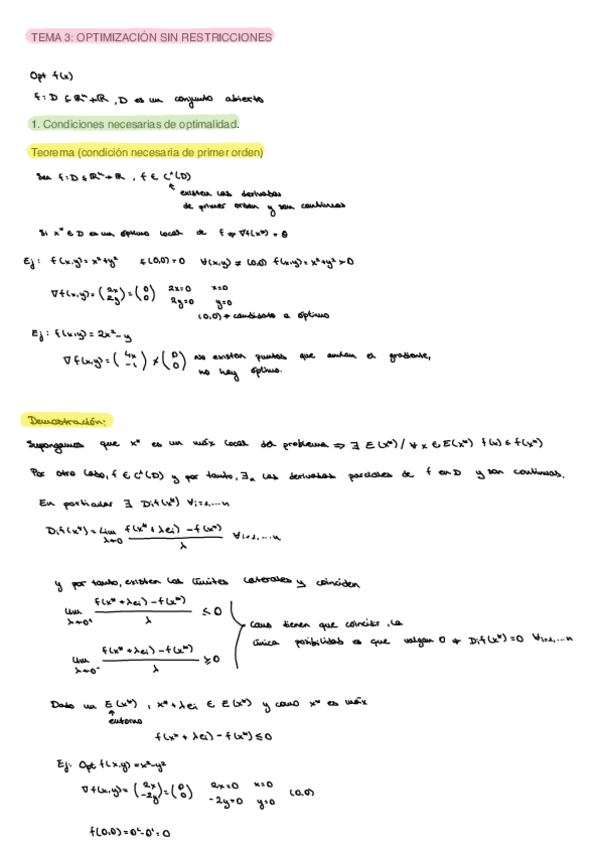 TEMA 3: OPTIMIZACIÓN SIN RESTRICCIONES
Opt f(x)
f: D ⊆ ℝⁿ → ℝ, D es un conjunto abierto
1. Condiciones necesarias de optimalidad.
Teorema (condición necesaria de primer orden)
Sea f: D ⊆ ℝⁿ → ℝ, f ∈ C¹(D)
↑ existen las derivadas
de primer orden y son continuas
Si x* ∈ D es un óptimo local de f ⇒ ∇f(x*) = θ
Ej: f(x,y) = x²+y² f(0,0) = 0 ∀(x,y) ≠ (0,0) f(x,y) = x²+y² > 0
∇f(x,y) = (2x 2y) = (0 0) 2x=0 x=0
2y=0 y=0
(0,0) → candidato a óptimo
Ej: f(x,y) = 2x² - y
∇f(x,y) = (4x -1) ≠ (0 0) no existen puntos que anulan el gradiente,
no hay óptimo.
Demostración:
Supongamos que x* es un máx local del problema ⇒ ∃ E(x*) / ∀ x ∈ E(x*) f(x) ≤ f(x*)
Por otro lado, f ∈ C¹(D) y por tanto, ∃n las derivadas parciales de f en D y son continuas.
En particular ∃ Dif(x*) ∀i=1,...n
Dif(x*) = lim λ→0 f(x* + λei) - f(x*) / λ ∀i=1,...n
y por tanto, existen los límites laterales y coinciden
lim λ→0⁺ f(x* + λei) - f(x*) / λ ≤ 0
como tienen que coincidir, la
única posibilidad es que valgan 0 → Dif(x*) = 0 ∀i=1,...n
lim λ→0⁻ f(x* + λei) - f(x*) / λ ≥ 0
Dado un E(x*), x* + λei ∈ E(x*) y como x* es máx
↑ entorno
f(x* + λei) - f(x*) ≤ 0
Ej: Opt f(x,y) = x² - y²
∇f(x,y) = (2x -2y) = (0 0) 2x=0 x=0
-2y=0 y=0 (0,0)
f(0,0) = 0² - 0² = 0